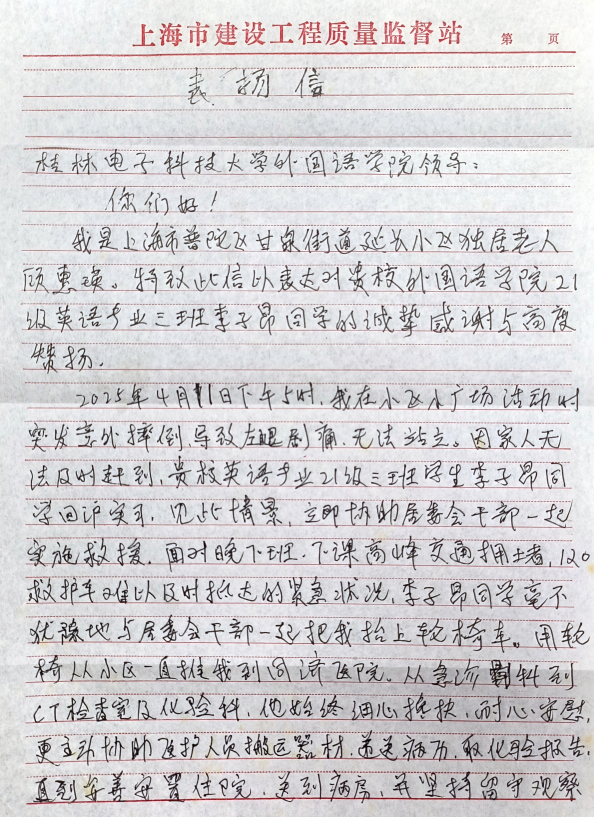 上海市建设工程质量监督站 第 页
表扬信
桂林电子科技大学外国语学院领导：
你们好！
我是上海市普陀区甘泉街道延长小区独居老人
顾惠瑛。特致此信以表达对贵校外国语学院21
级英语专业三班李子昂同学的诚挚感谢与高度
赞扬。
2025年4月11日下午5时，我在小区小广场活动时
突发意外摔倒导致左腿剧痛，无法站立。因家人无
法及时赶到，贵校英语专业21级三班学生李子昂同
学回沪实习，见此情景，立即协助居委会干部一起
实施救援，面对晚下班、下课高峰交通拥堵，120
救护车难以及时抵达的紧急状况，李子昂同学毫不
犹豫地与居委会干部一起把我抬上轮椅车。用轮
椅从小区一直推我到同济医院。从急诊科到
CT检查室及化验科，他始终细心搀扶，耐心安慰，
更主动协助医护人员搬运器材，递送病历，取化验报告，
直到妥善安置住院，送到病房，并坚持留守观察